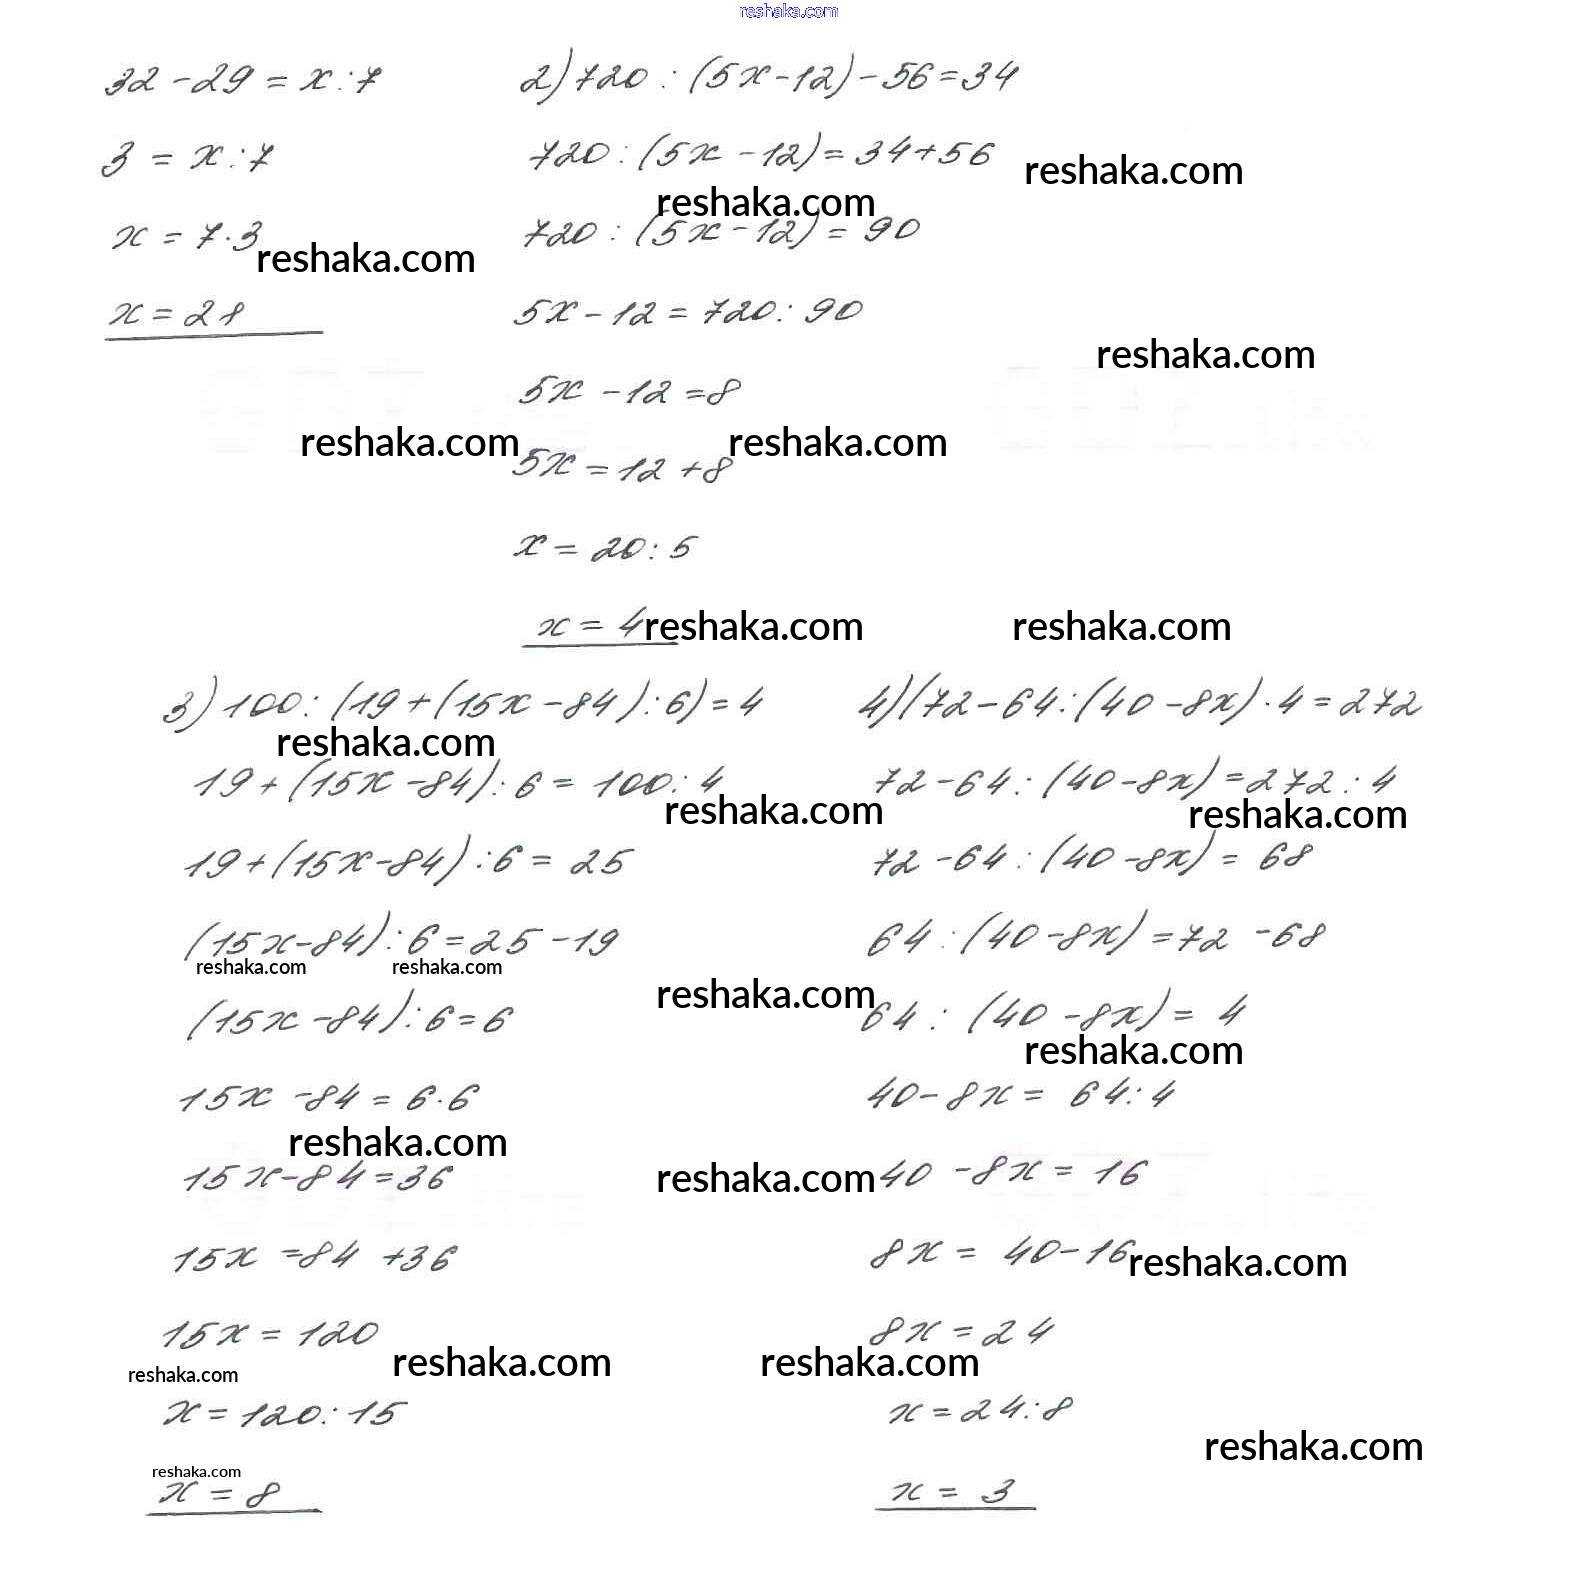 reshaka.com
32 - 29 = x : 7
3 = x : 7
x = 7 · 3
reshaka.com
x = 28
2) 720 : (5x - 12) - 56 = 34
720 : (5x - 12) = 34 + 56
reshaka.com
reshaka.com
720 : (5x - 12) = 90
5x - 12 = 720 : 90
reshaka.com
5x - 12 = 8
reshaka.com
reshaka.com
5x = 12 + 8
x = 20 : 5
x = 4
reshaka.com
reshaka.com
3) 100 : (19 + (15x - 84) : 6) = 4
reshaka.com
19 + (15x - 84) : 6 = 100 : 4
reshaka.com
19 + (15x - 84) : 6 = 25
(15x - 84) : 6 = 25 - 19
reshaka.com
reshaka.com
(15x - 84) : 6 = 6
15x - 84 = 6 · 6
reshaka.com
15x - 84 = 36
15x = 84 + 36
15x = 120
reshaka.com
reshaka.com
x = 120 : 15
reshaka.com
x = 8
4) (72 - 64 : (40 - 8x) · 4 = 272
72 - 64 : (40 - 8x) = 272 : 4
reshaka.com
72 - 64 : (40 - 8x) = 68
64 : (40 - 8x) = 72 - 68
reshaka.com
64 : (40 - 8x) = 4
reshaka.com
40 - 8x = 64 : 4
reshaka.com
40 - 8x = 16
8x = 40 - 16
reshaka.com
8x = 24
reshaka.com
x = 24 : 8
reshaka.com
x = 3